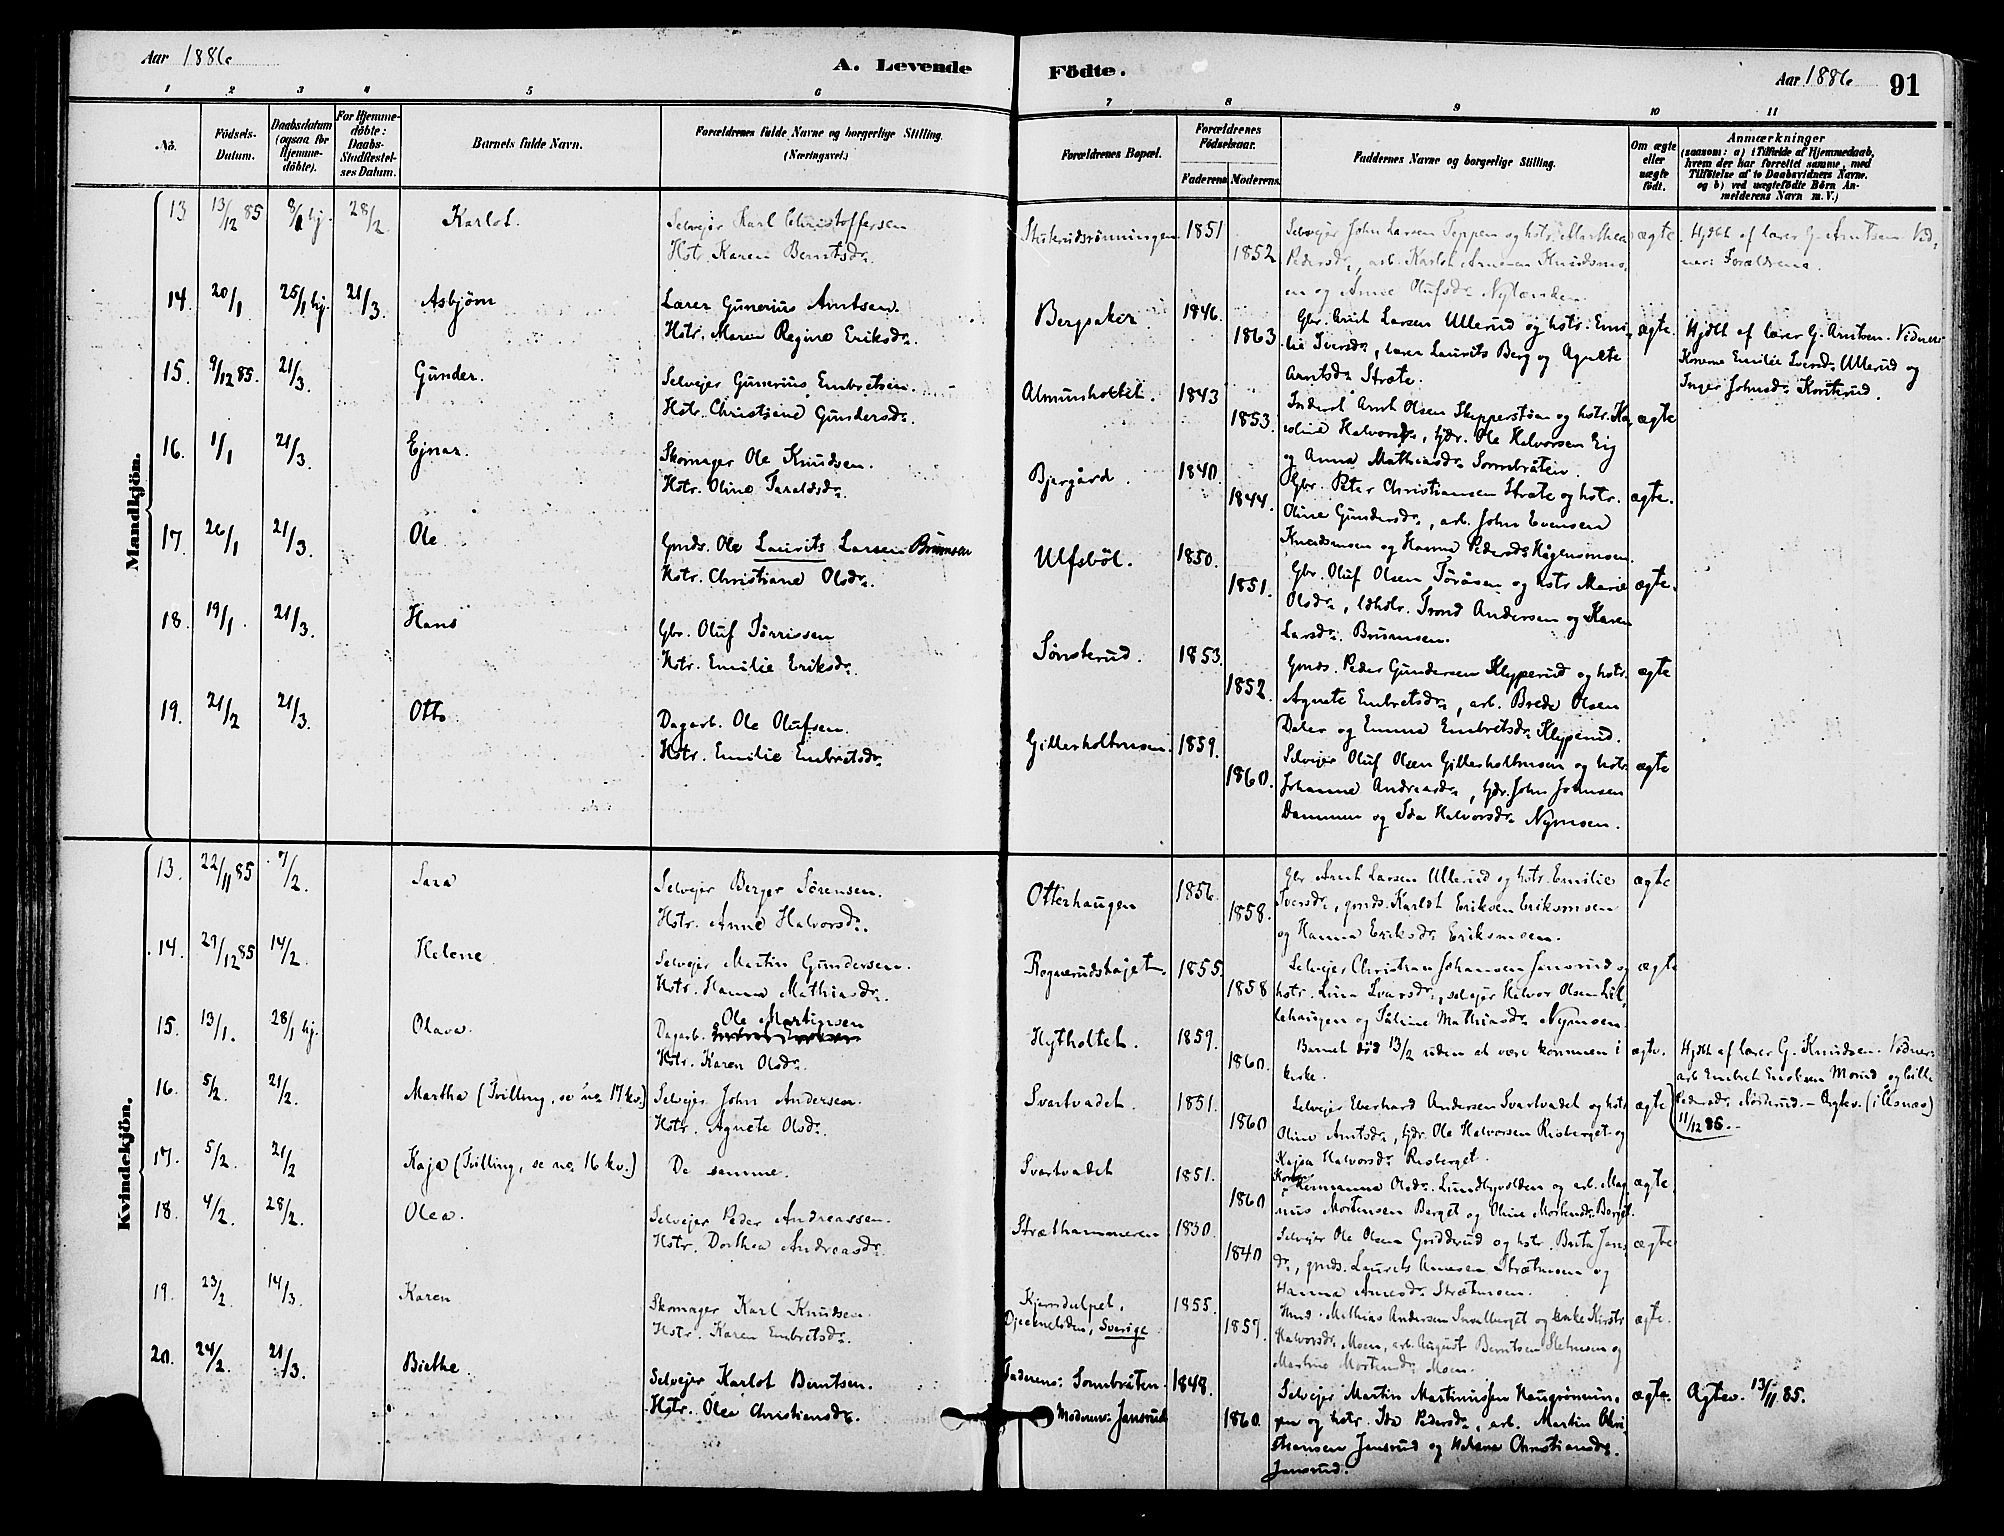 Aar 1886
A. Levende
Födte.
Aar 1886
91
1 2 3 4 5 6 7 8 9 10 11
No.
Födsels-Datum.
Daabsdatum (ogsaa for Hjemmedöbte).
For Hjemmedöbte: Daabs-Stadfæstelses Datum.
Barnets fulde Navn.
Forældrenes fulde Navne og borgerlige Stilling.
(Næringsvei.)
Forældrenes Bopæl.
Forældrenes Födselsaar.
Faderens Moderens
Faddernes Navne og borgerlige Stilling.
Om ægte eller uægte födt.
Anmærkninger
(saasom: a) i Tilfælde af Hjemmedaab, hvem der har forrettet samme, med Tilföielse af to Daabsvidners Navne. og b) ved uægtefödte Börn Anmelderens Navn m. V.)
Mandkjön.
13 13/12 85 8/1 hj. 28/2 Karlot. Selvejer Karl Christoffersen
Hstr. Karen Berntsdr.
1851
1852
Selvejer John Larsen Teppen og hstr. Marthea
Pedersdr., arb. Karlot Arnesen Knudsmo-
en og Anne Olufsdr. Nylænden.
ægte
Hjdbt af lærer G. Arntsen. Vid-
ner: Forældrene.
14. 20/1 25/1 hj. 21/3 Asbjørn Lærer Gunerius Arntsen.
Hstr. Maren Regine Eriksdr.
Bergsaker 1846.
1863
Gbr. Arnt Larsen Ullerud og hstr. Emi-
lie Iversdr., lærer Laurits Berg og Agnete
Arntsdr. Stræte.
ægte.
Hjdbt af lærer G. Arntsen. Vidner:
Konerne Emilie Iversdr. Ullerud og
Inger Johnsdr. Korterud.
15. 9/12 85. 21/3. Gunder. Selvejer Gunerius Embretsen.
Hstr. Christiane Gundersdr.
Almunholtet. 1843
1853.
Inderst Arnt Olsen Skipperstøen og hstr. Ka-
roline Halvorsdr., tjdr. Ole Halvorsen Eig
og Anna Mathiasdr. Sornbråten.
ægte
16. 1/1 21/3. Ejnar. Skomager Ole Knudsen.
Hstr. Oline Taraldsdr.
Bjergård. 1840.
1844.
Gbr. Peter Christiansen Stræte og hstr.
Oline Gundersdr., arb. John Evensen
Knudsmoen og Hanna Pedersdr. Hågensmoen.
ægte.
17. 26/1 21/3. Ole Gmds. Ole Laurits Larsen Brumoen
Hstr. Christiane Olsdr.
Ulfsböl. 1850.
1851.
Gbr. Oluf Olsen Töråsen og hstr. Marie
Olsdr., Trond Andersen og Karen
Larsdr. Brumoen.
ægte.
18. 19/1. 21/3. Hans Gbr. Oluf Tørrissen
Hstr. Emilie Eriksdr.
Sønsterud. 1853.
1852.
Gmds. Peder Gundersen Klypperud og hstr.
Agnete Embretsdr., arb. Brede Olsen
Daler og Emma Embretsdr. Klyperud.
ægte
19. 21/2 21/3. Otto Dagarb. Ole Olufsen.
Hstr. Emilie Embretsdr.
Gillerholtmoen. 1859.
1860.
Selvejer Oluf Olsen Gillerholtmoen og hstr.
Johanne Andreasdr., tjdr. John Johnsen
Dammen og Ida Halvorsdr. Nymoen.
ægte
Kvindekjön.
13. 22/11 85 7/2. Sara Selvejer Berger Sørensen.
Hstr. Anne Halvorsdr.
Otterhaugen 1856.
1858.
Gbr. Arnt Larsen Ullerud og hstr. Emilie
Iversdr., gmds. Karlot Eriksen Eriksmoen
og Hanna Eriksdr. Eriksmoen.
ægte
14. 29/12 85 14/2. Helene Selvejer Martin Gundersen.
Hstr. Hanna Mathiasdr.
1855.
1858
Selvejer Christian Johansen Jansrud og
hstr. Lina Ivarsdr., selvejer Halvor Olsen Lil-
lehaugen og Mathiasdr. Nymoen.
ægte
15. 13/1. 28/1 hj. Olava Dagarb. Ole Martinsen
Hstr. Karen Olsdr.
Hytholtet. 1859.
1860.
Barnet død 13/2 uden at være kommen i
kirke.
ægte.
Hjdbt af lærer G. Knudsen. Vidner:
arb. Embret
Pedersdr. Nørderud. – Agtev. (i )
11/12 85.
16. 5/2. 21/2. Martha (Tvilling, se no. 17 kv.) Selvejer John Andersen.
Hstr. Agnete Olsdr.
Svartvadet. 1851.
1860
Selvejer Eberhard Andersen Svartvadet og hstr.
Oline Arntsdr., tjdr. Ole Halvorsen Risberget og
Kajsa Halvorsdr. Risberget.
ægte
17. 5/2. 21/2 Kaja (Tvilling, se no. 16 kv.) De samme.
Svartvadet 1851.
1860
Hermanna Olsdr. Lundbyvolden og arb. Mag-
nus Mortensen Berget og Oline Mortensdr. Berget.
ægte.
18. 4/2. 28/2. Olea. Selvejer Peder Andreassen.
Hstr. Dorthea Andreasdr.
Stræthammeren 1830.
1840
Selvejer Ole Olsen Gridderud og hstr. Berta Jans-
dr., gmds. Laurits Arnesen Strætmoen og
Hanna Arnesdr. Strætmoen.
ægte
19. 23/2. 14/3. Karen Skomager Karl Knudsen.
Hstr. Karen Embretsdr.
Sverige 1855.
1857.
Mathias Andersen og
Halvorsdr. Moen, arb. August Berntsen og
Martine Mortensdr. Moen.
ægte.
20. 24/2. 21/3. Birthe Selvejer Karlot Berntsen.
Hstr. Olea Christiansdr.
Faderens: Sornbråten. 1848.
Moderens: Jansrud 1860.
Selvejer Martin Martinussen Haugrønnin-
gen og hstr. Ida Pedersdr., arb. Martin Chri-
stiansen Jansrud og Helene Christiansdr.
Jansrud.
ægte.
Agtev. 13/11 85.